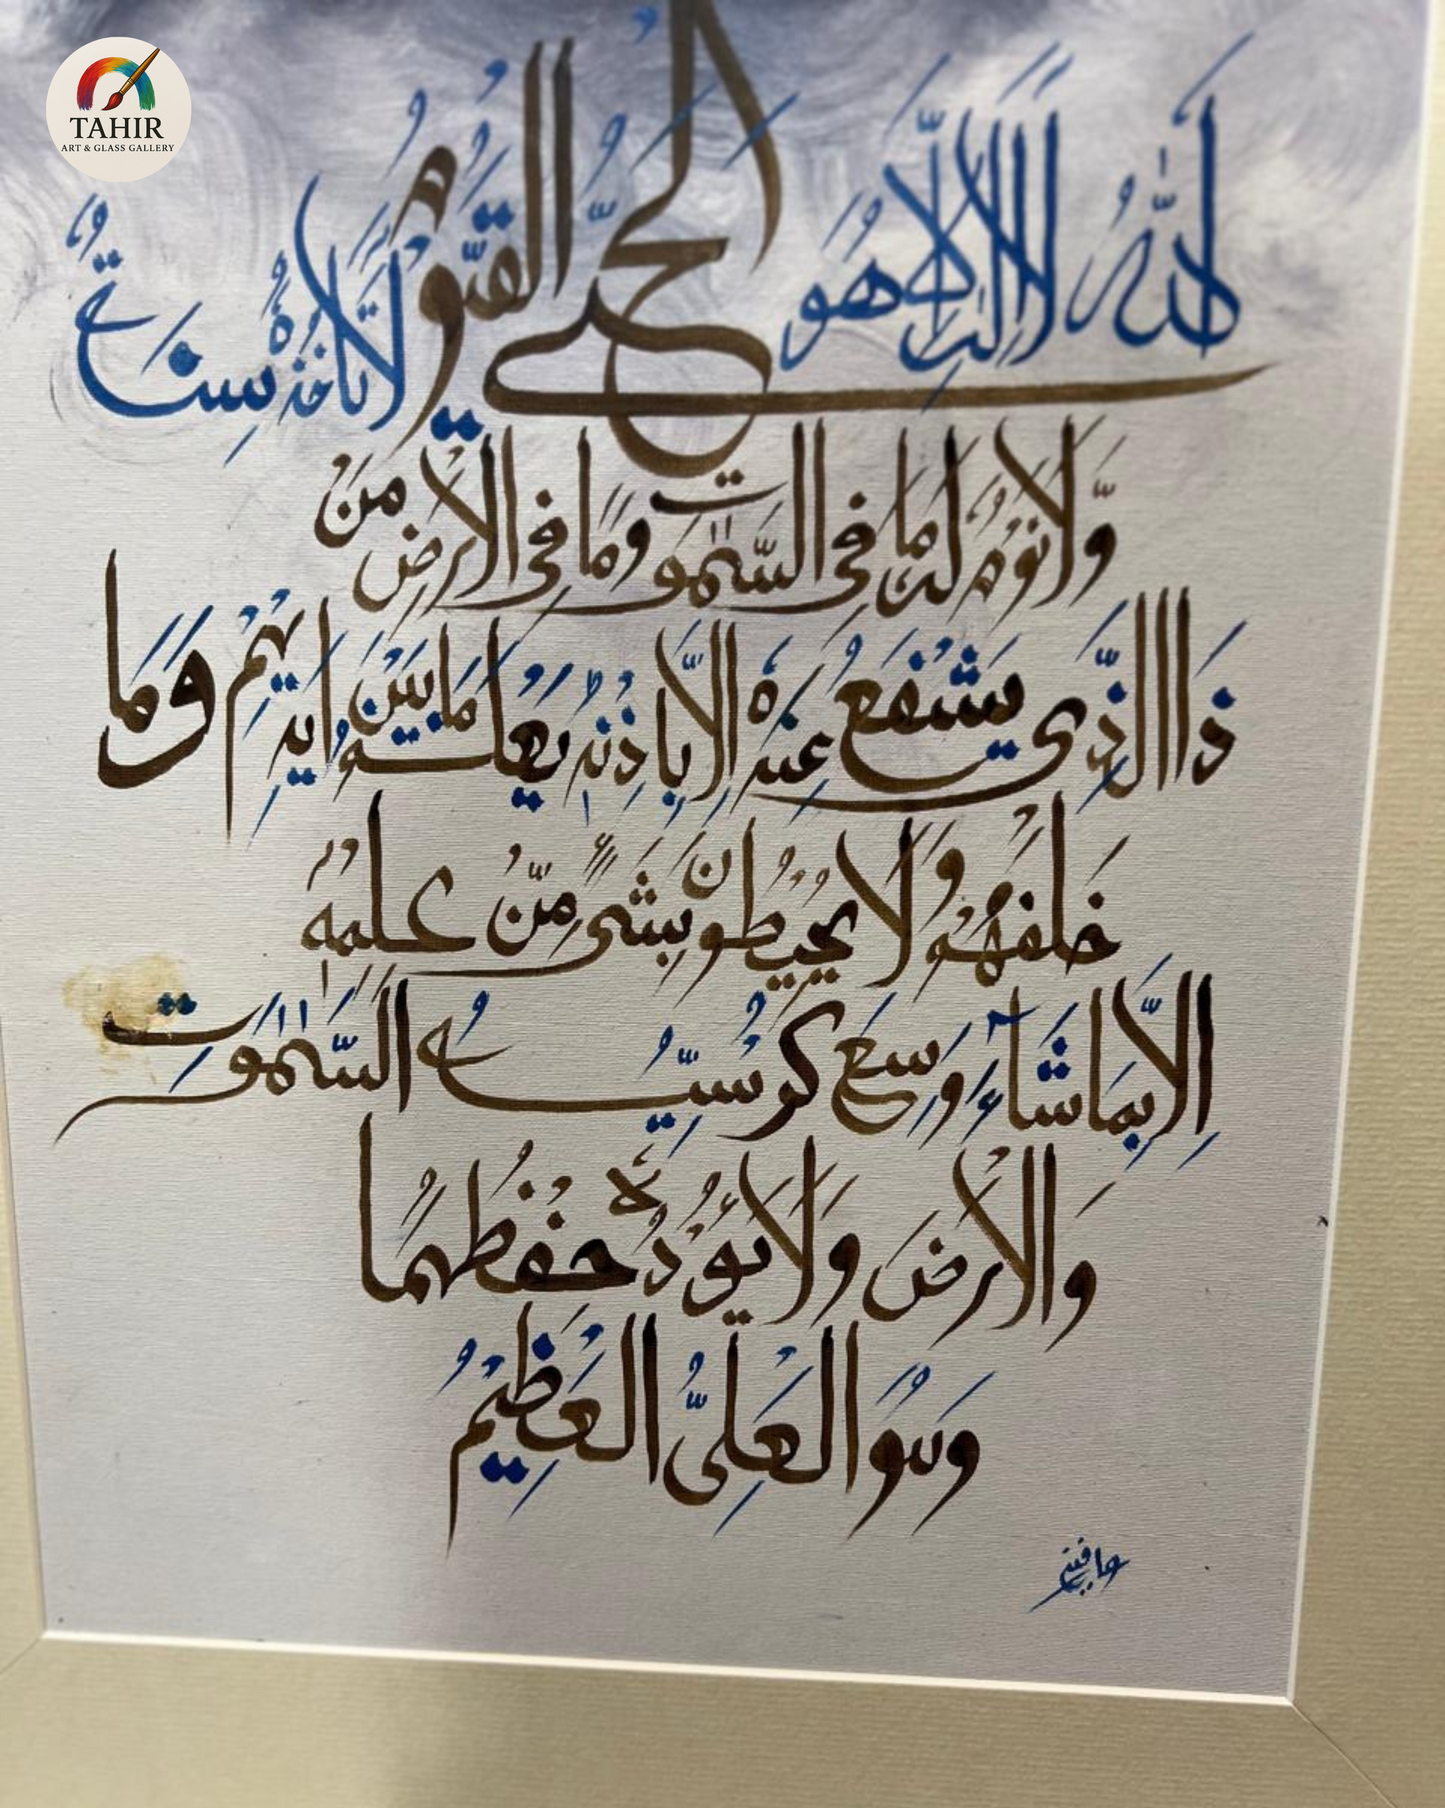 TAHIR
ART & GLASS GALLERY
اللهُ لَا إِلٰهَ إِلَّا هُوَ الْحَيُّ الْقَيُّومُ لَا تَأْخُذُهُ سِنَةٌ
وَّلَا نَوْمٌ لَهُ مَا فِي السَّمٰوٰتِ وَمَا فِي الْاَرْضِ مَنْ
ذَا الَّذِي يَشْفَعُ عِنْدَهُ اِلَّا بِاِذْنِهٖ يَعْلَمُ مَا بَيْنَ اَيْدِيهِمْ وَمَا
خَلْفَهُمْ وَلَا يُحِيْطُوْنَ بِشَىْءٍ مِّنْ عِلْمِهٖ
اِلَّا بِمَا شَآءَ وَسِعَ كُرْسِيُّهُ السَّمٰوٰتِ
وَالْاَرْضَ وَلَا يَئُوْدُهٗ حِفْظُهُمَا
وَهُوَ الْعَلِىُّ الْعَظِيْمُ